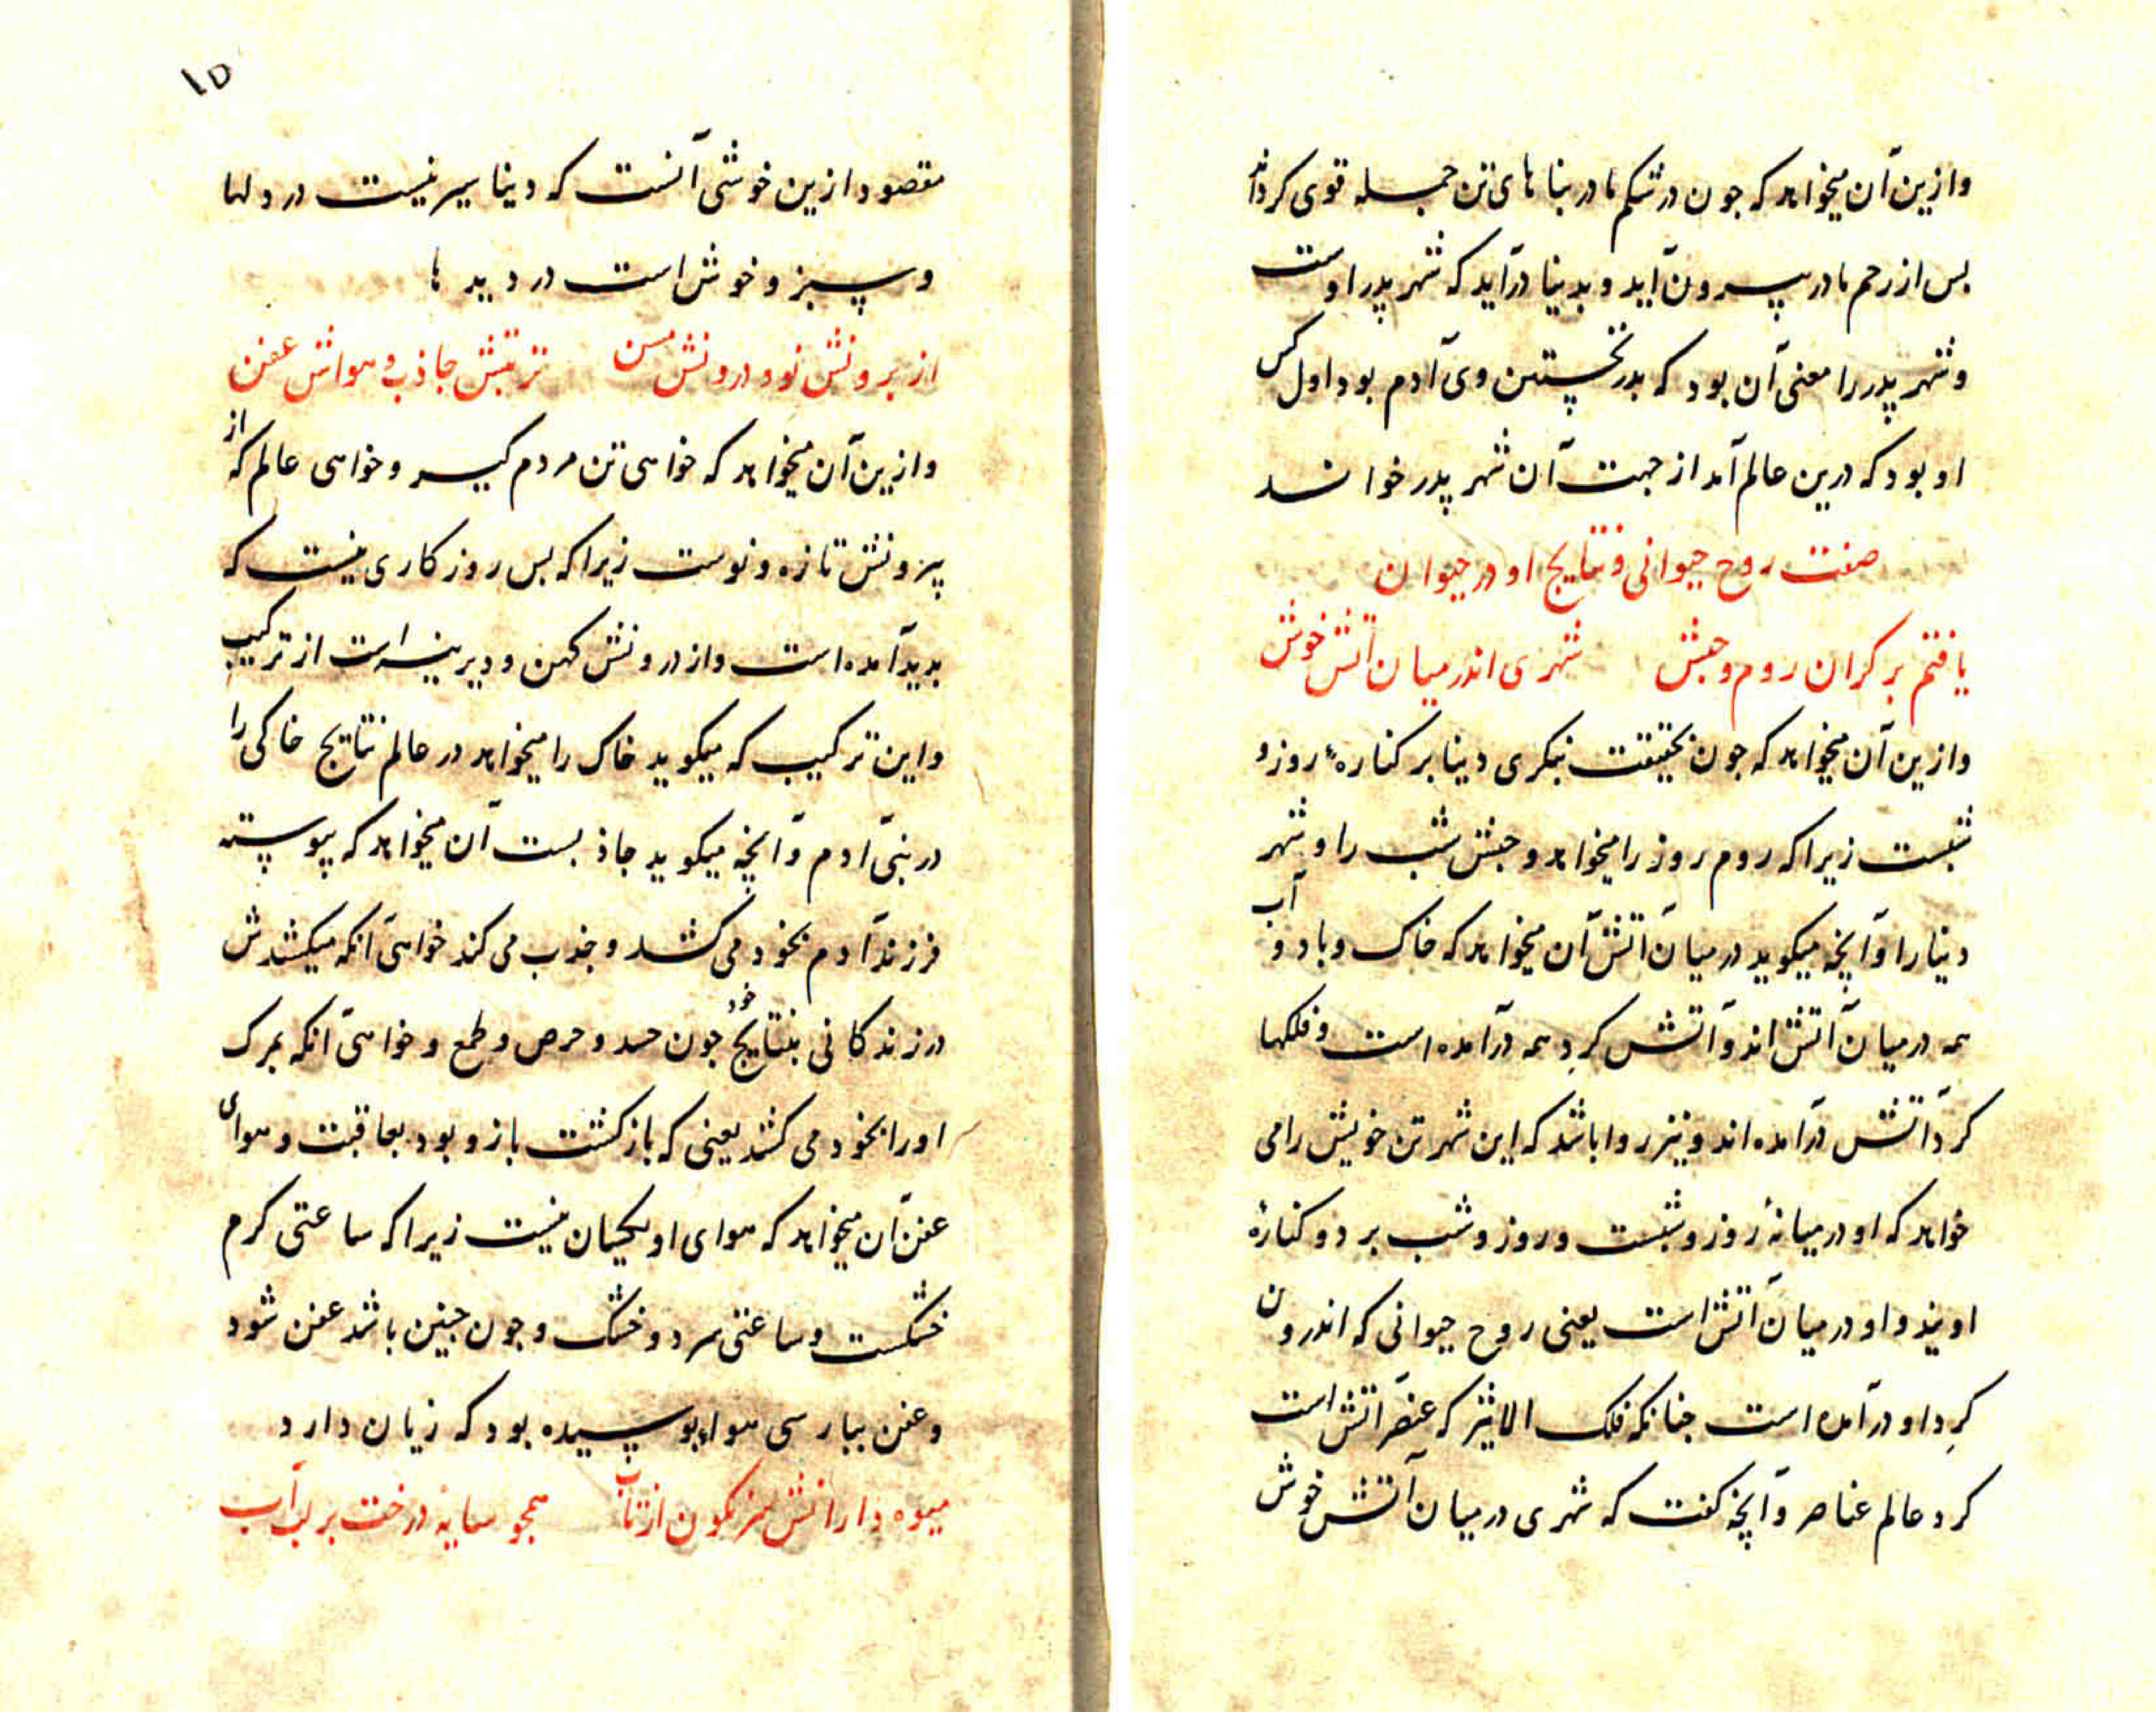 وازین آن میخواهد که جون در شکم مادر بناهای تن جمله قوی کرداند
بس از رحم مادر بیرون آید و بدینا درآید که شهر بدر اوست
و شهر بدر را معنی آن بود که بدر نخستین وی آدم بود اول کس
او بود که درین عالم آمد از جهت آن شهر بدر خواند
صفت روح حیوانی و نتایج او در حیوان
یافتم بر کران روم و حبش شهری اندر میان آتش خوش
وازین آن میخواهد که جون بحقیقت بنکری دنیا بر کنارهٔ روز و
شبست زیرا که روم روز را میخواهد و حبش شب را و شهر
دنیا را و آنچه میکوید در میان آتش آن میخواهد که خاک و باد و آب
همه در میان آتش اند و آتش کرِد همه درآمده است و فلکها
کرد آتش درآمده اند و نیز روا باشد که این شهر تن خویش را می
خواهد که او در میانهٔ روز و شبست و روز و شب بر دو کنارهٔ
اویند و او در میان آتش است یعنی روح حیوانی که اندرون
کرِد او درآمده است جنانکه فلک الاثیر که عنصر آتش است
کرد عالم عناصر و آنچه کفت که شهری در میان آتش خوش
۱۵
مقصود ازین خوشی آنست که دنیا سیر نیست در دلها
و سبز و خوش است در دیدها
از برونش نو و درونش مسن تربتش جاذب و هواش عفن
وازین آن میخواهد که خواهی تن مردم کیر و خواهی عالم که از
بیرونش تازه و نوست زیرا که بس روزکاری نیست که
بدید آمده است و از درونش کهن و دیرینه است از ترکیب
و این ترکیب که میکوید خاک را میخواهد در عالم نتایج خاکی را
در بنی آدم و آنچه میکوید جاذبست آن میخواهد که پیوسته
فرزند آدم بخود می کشد و جذب می کند خواهی آنکه میکشدش
در زندکانی بنتایج خود جون حسد و حرص و طمع و خواهی آنکه بمرک
او را بخود می کشد یعنی که بازکشت بازو بود بعاقبت و هوای
عفن آن میخواهد که هوای او یکسان نیست زیرا که ساعتی کرم
خشکست و ساعتی سرد و خشک و جون جنین باشد عفن شود
و عفن ببارسی هوا پوسیده بود که زیان دارد
میوه دارانش سرنکون از تاب همجو سایه درخت بر لب آب